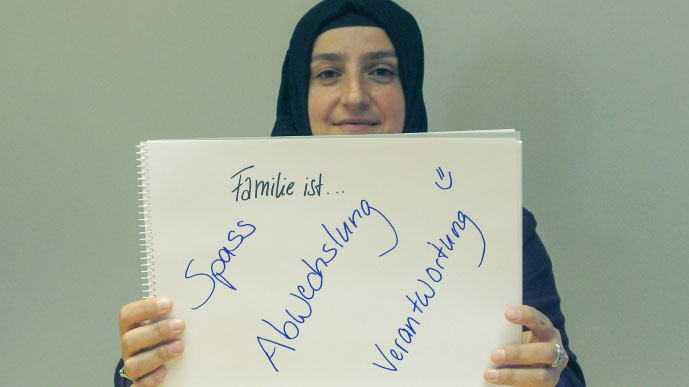 Familie ist...
Spass
Abwechslung
Verantwortung